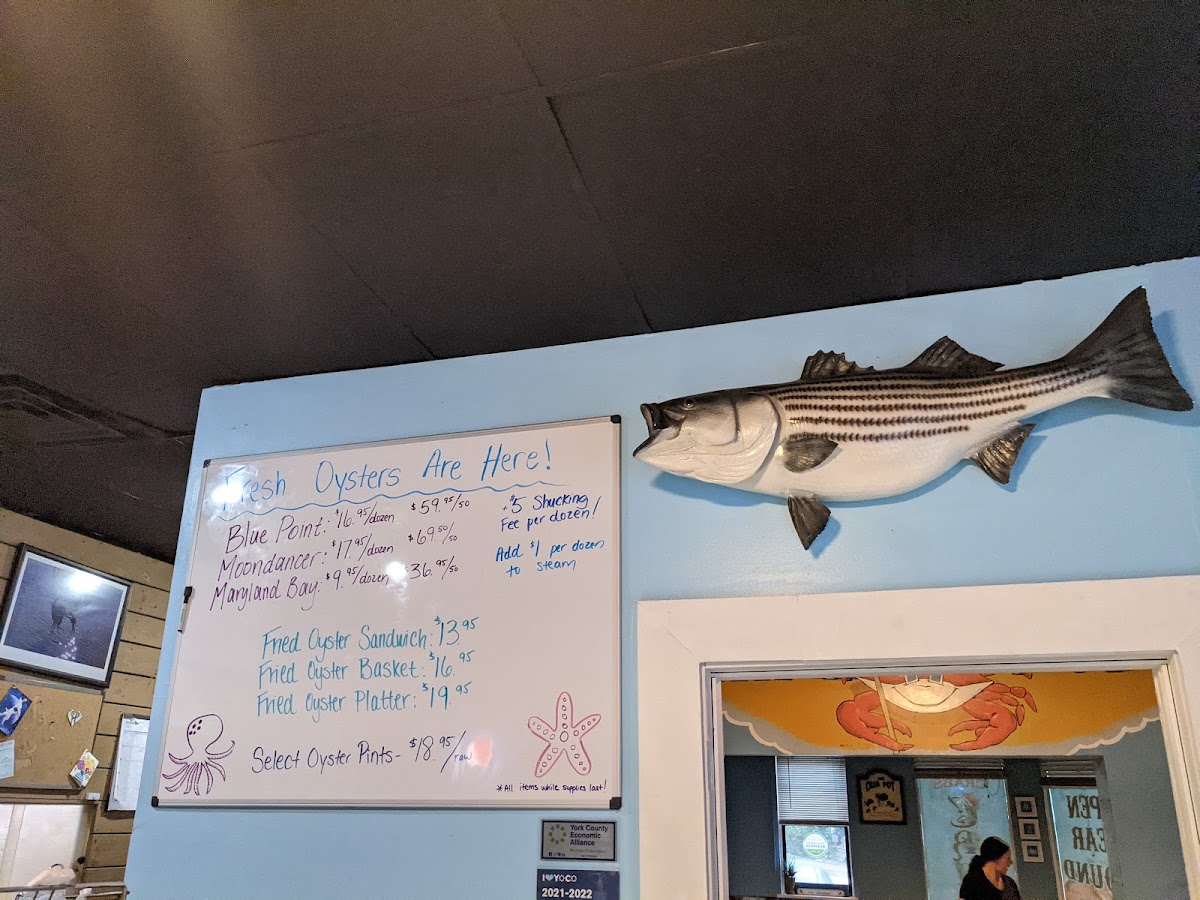 Fresh Oysters Are Here!
Blue Point: $16.95/dozen $59.95/50
Moondancer: $17.95/dozen $69.50/50
Maryland Bay: $9.95/dozen $36.95/50
+$5 Shucking
Fee per dozen!
Add $1 per dozen
to steam
Fried Oyster Sandwich: $13.95
Fried Oyster Basket: $16.95
Fried Oyster Platter: $19.95
Select Oyster Pints- $18.95/raw
*All items while supplies last!
York County
Economic
Alliance
I YOCO
2021-2022
OPEN
YEAR
ROUND